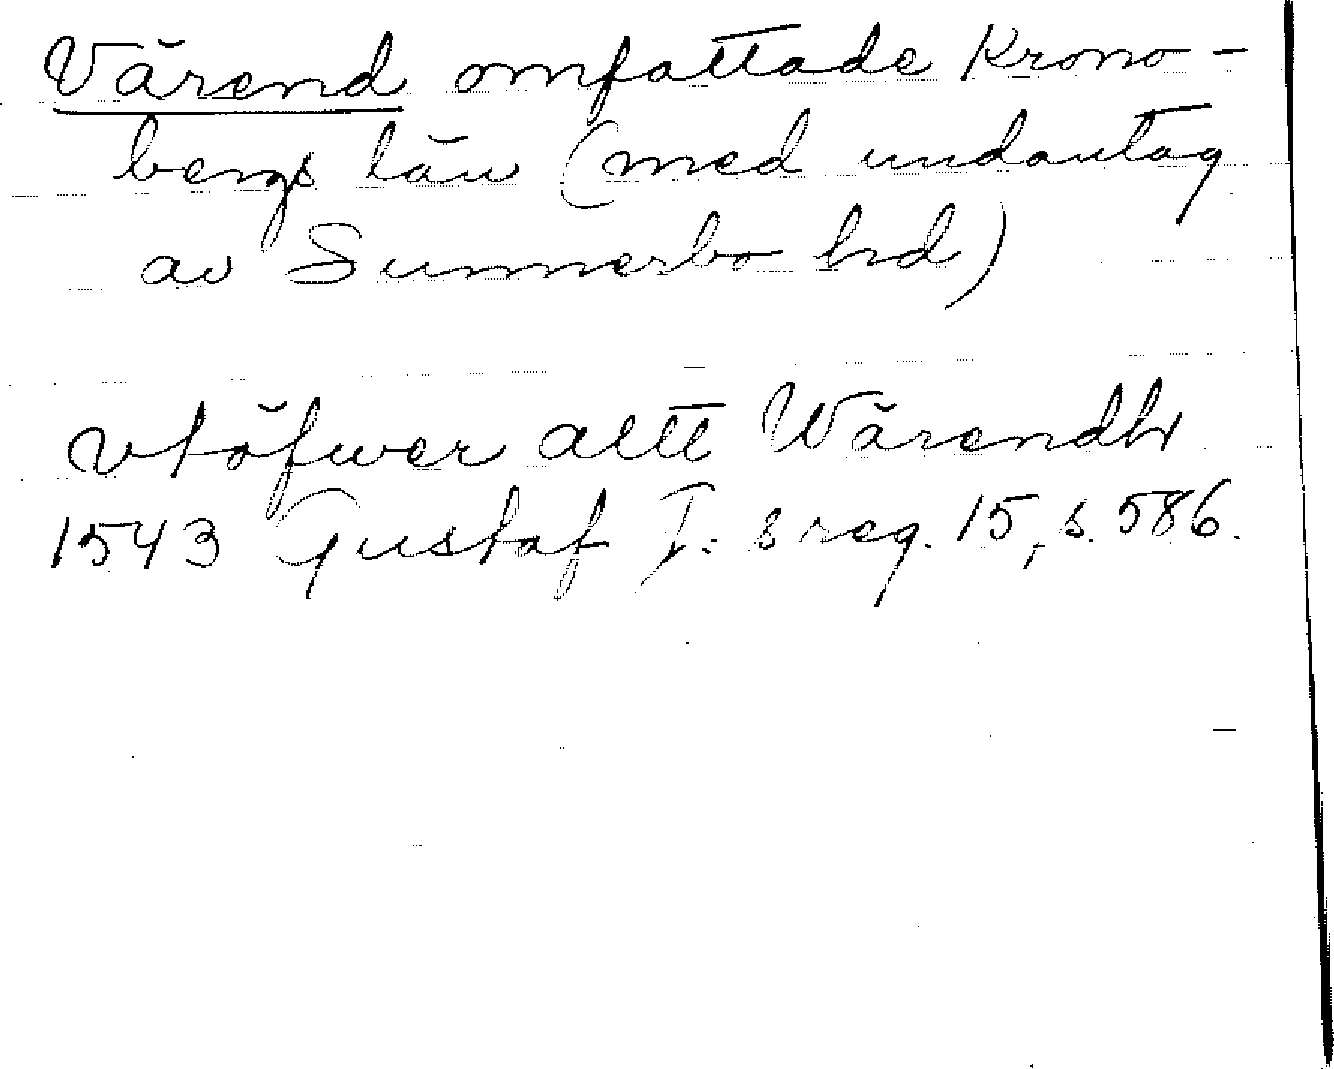 Värend omfattade Krono-
bergs län (med undantag
av Sunnerbo hd)
vtöfwer allt Wärendh
1543 Gustaf I:s reg. 15, s. 586.